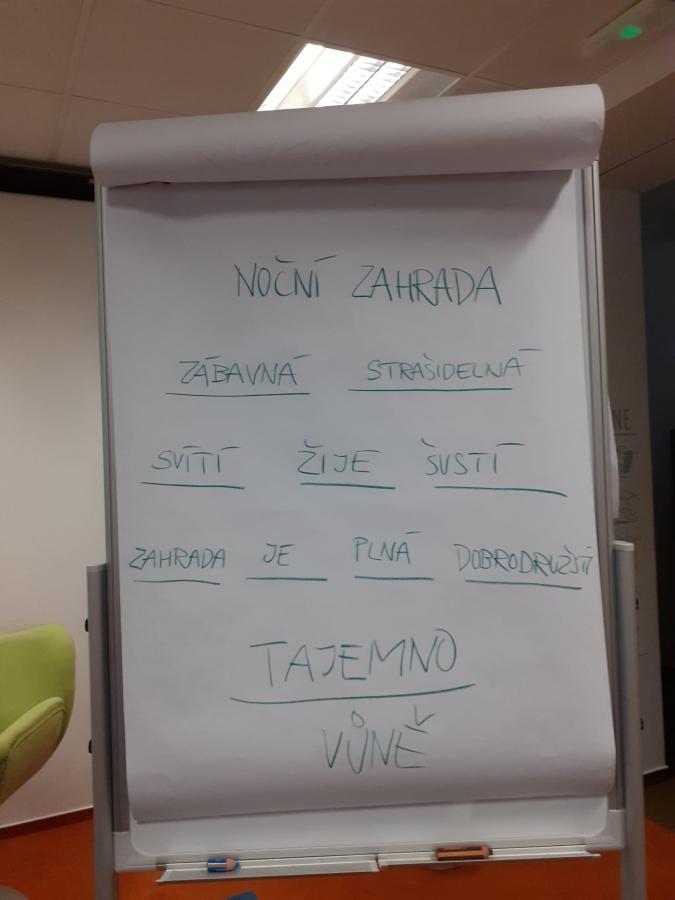 NOČNÍ ZAHRADA
ZÁBAVNÁ STRAŠIDELNÁ
SVÍTÍ ŽIJE ŠUSTÍ
ZAHRADA JE PLNÁ DOBRODRUŽSTÍ
TAJEMNO
VŮNĚ